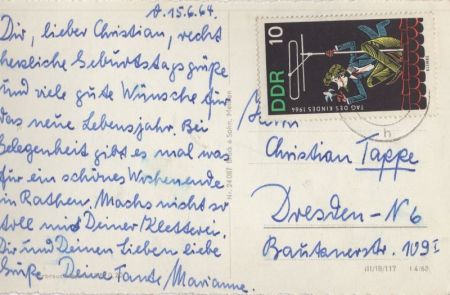 A. 15.6.64.
Dir, lieber Christian, recht
herzliche Geburtstagsgrüße
und viele gute Wünsche für
das neue Lebensjahr. Bei
Gelegenheit gibt es mal was
für ein schönes Wochenende
in Rathen. Machs nicht so
toll mit Deiner Kletterei.
Dir und Deinen Lieben liebe
Grüße Deine Tante Marianne.
Nr. 24 087 Brück & Sohn, Meißen
10
DDR
TAG DES KINDES 1964
Herrn
Christian Tappe
Dresden-N 6
Bautznerstr. 109 I
III/18/117 1 4/60